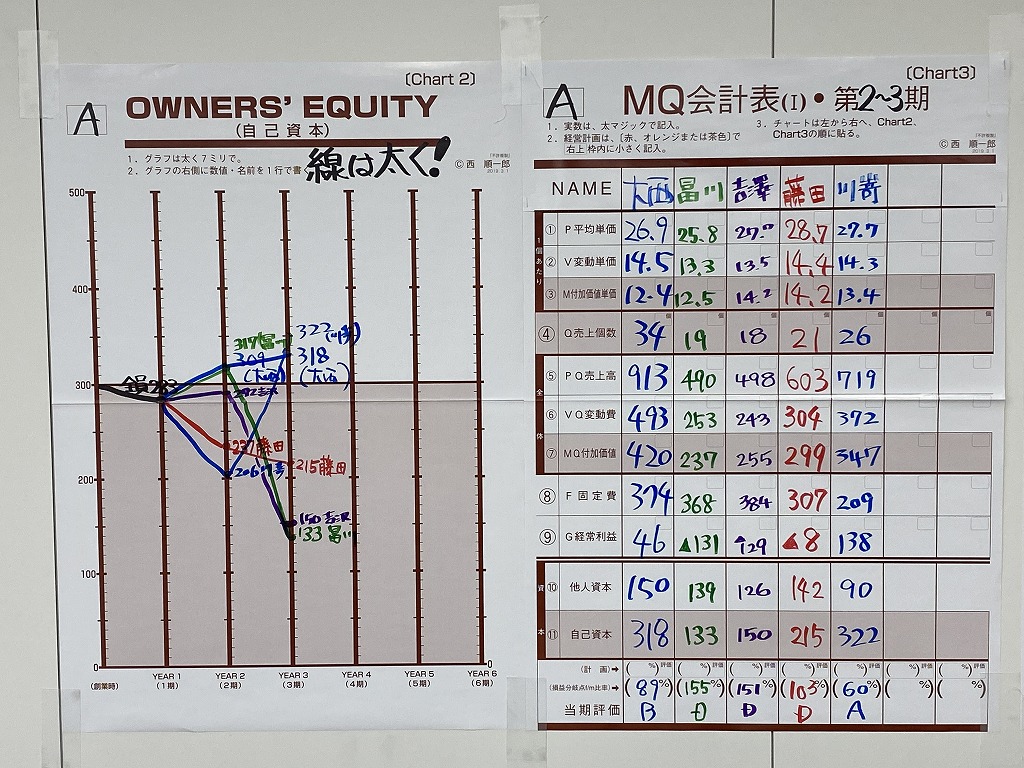 〔Chart 2〕
A
OWNERS' EQUITY
(自己資本)
1. グラフは太く7ミリで。
2. グラフの右側に数値・名前を1行で書
線は太く!
© 西 順一郎
500
400
300
200
100
0
317(冨川)
309
(大西)
322(川嵜)
318
(大西)
292吉沢
237藤田
206川嵜
215藤田
150吉沢
133冨川
0
(創業時)
YEAR 1 YEAR 2 YEAR 3 YEAR 4 YEAR 5 YEAR 6
(1期) (2期) (3期) (4期) (5期) (6期)
〔Chart3〕
A
MQ会計表(I)・第2~3期
1. 実数は、太マジックで記入。
2. 経営計画は、〔赤、オレンジまたは茶色〕で
右上枠内に小さく記入。
3. チャートは左から右へ、Chart2、
Chart3の順に貼る。
© 西 順一郎
NAME 大西 冨川 吉澤 藤田 川嵜
1個あたり
① P平均単価 26.9 25.8 27.7 28.7 27.7
② V変動単価 14.5 13.3 13.5 14.4 14.3
③ M付加価値単価 12.4 12.5 14.2 14.2 13.4
④ Q売上個数 34 19 18 21 26
全体
⑤ PQ売上高 913 490 498 603 719
⑥ VQ変動費 493 253 243 304 372
⑦ MQ付加価値 420 237 255 299 347
⑧ F固定費 374 368 384 307 209
⑨ G経常利益 46 ▲131 ▲129 ▲8 138
資本
⑩ 他人資本 150 139 126 142 90
⑪ 自己資本 318 133 150 215 322
(計 画)→ ( %)評価 ( %)評価 ( %)評価 ( %)評価 ( %)評価 ( %)評価 ( %)評価
(損益分岐点f/m比率)→ (89%) (155%) (151%) (103%) (60%) ( %) ( %)
当期評価 B D D D A